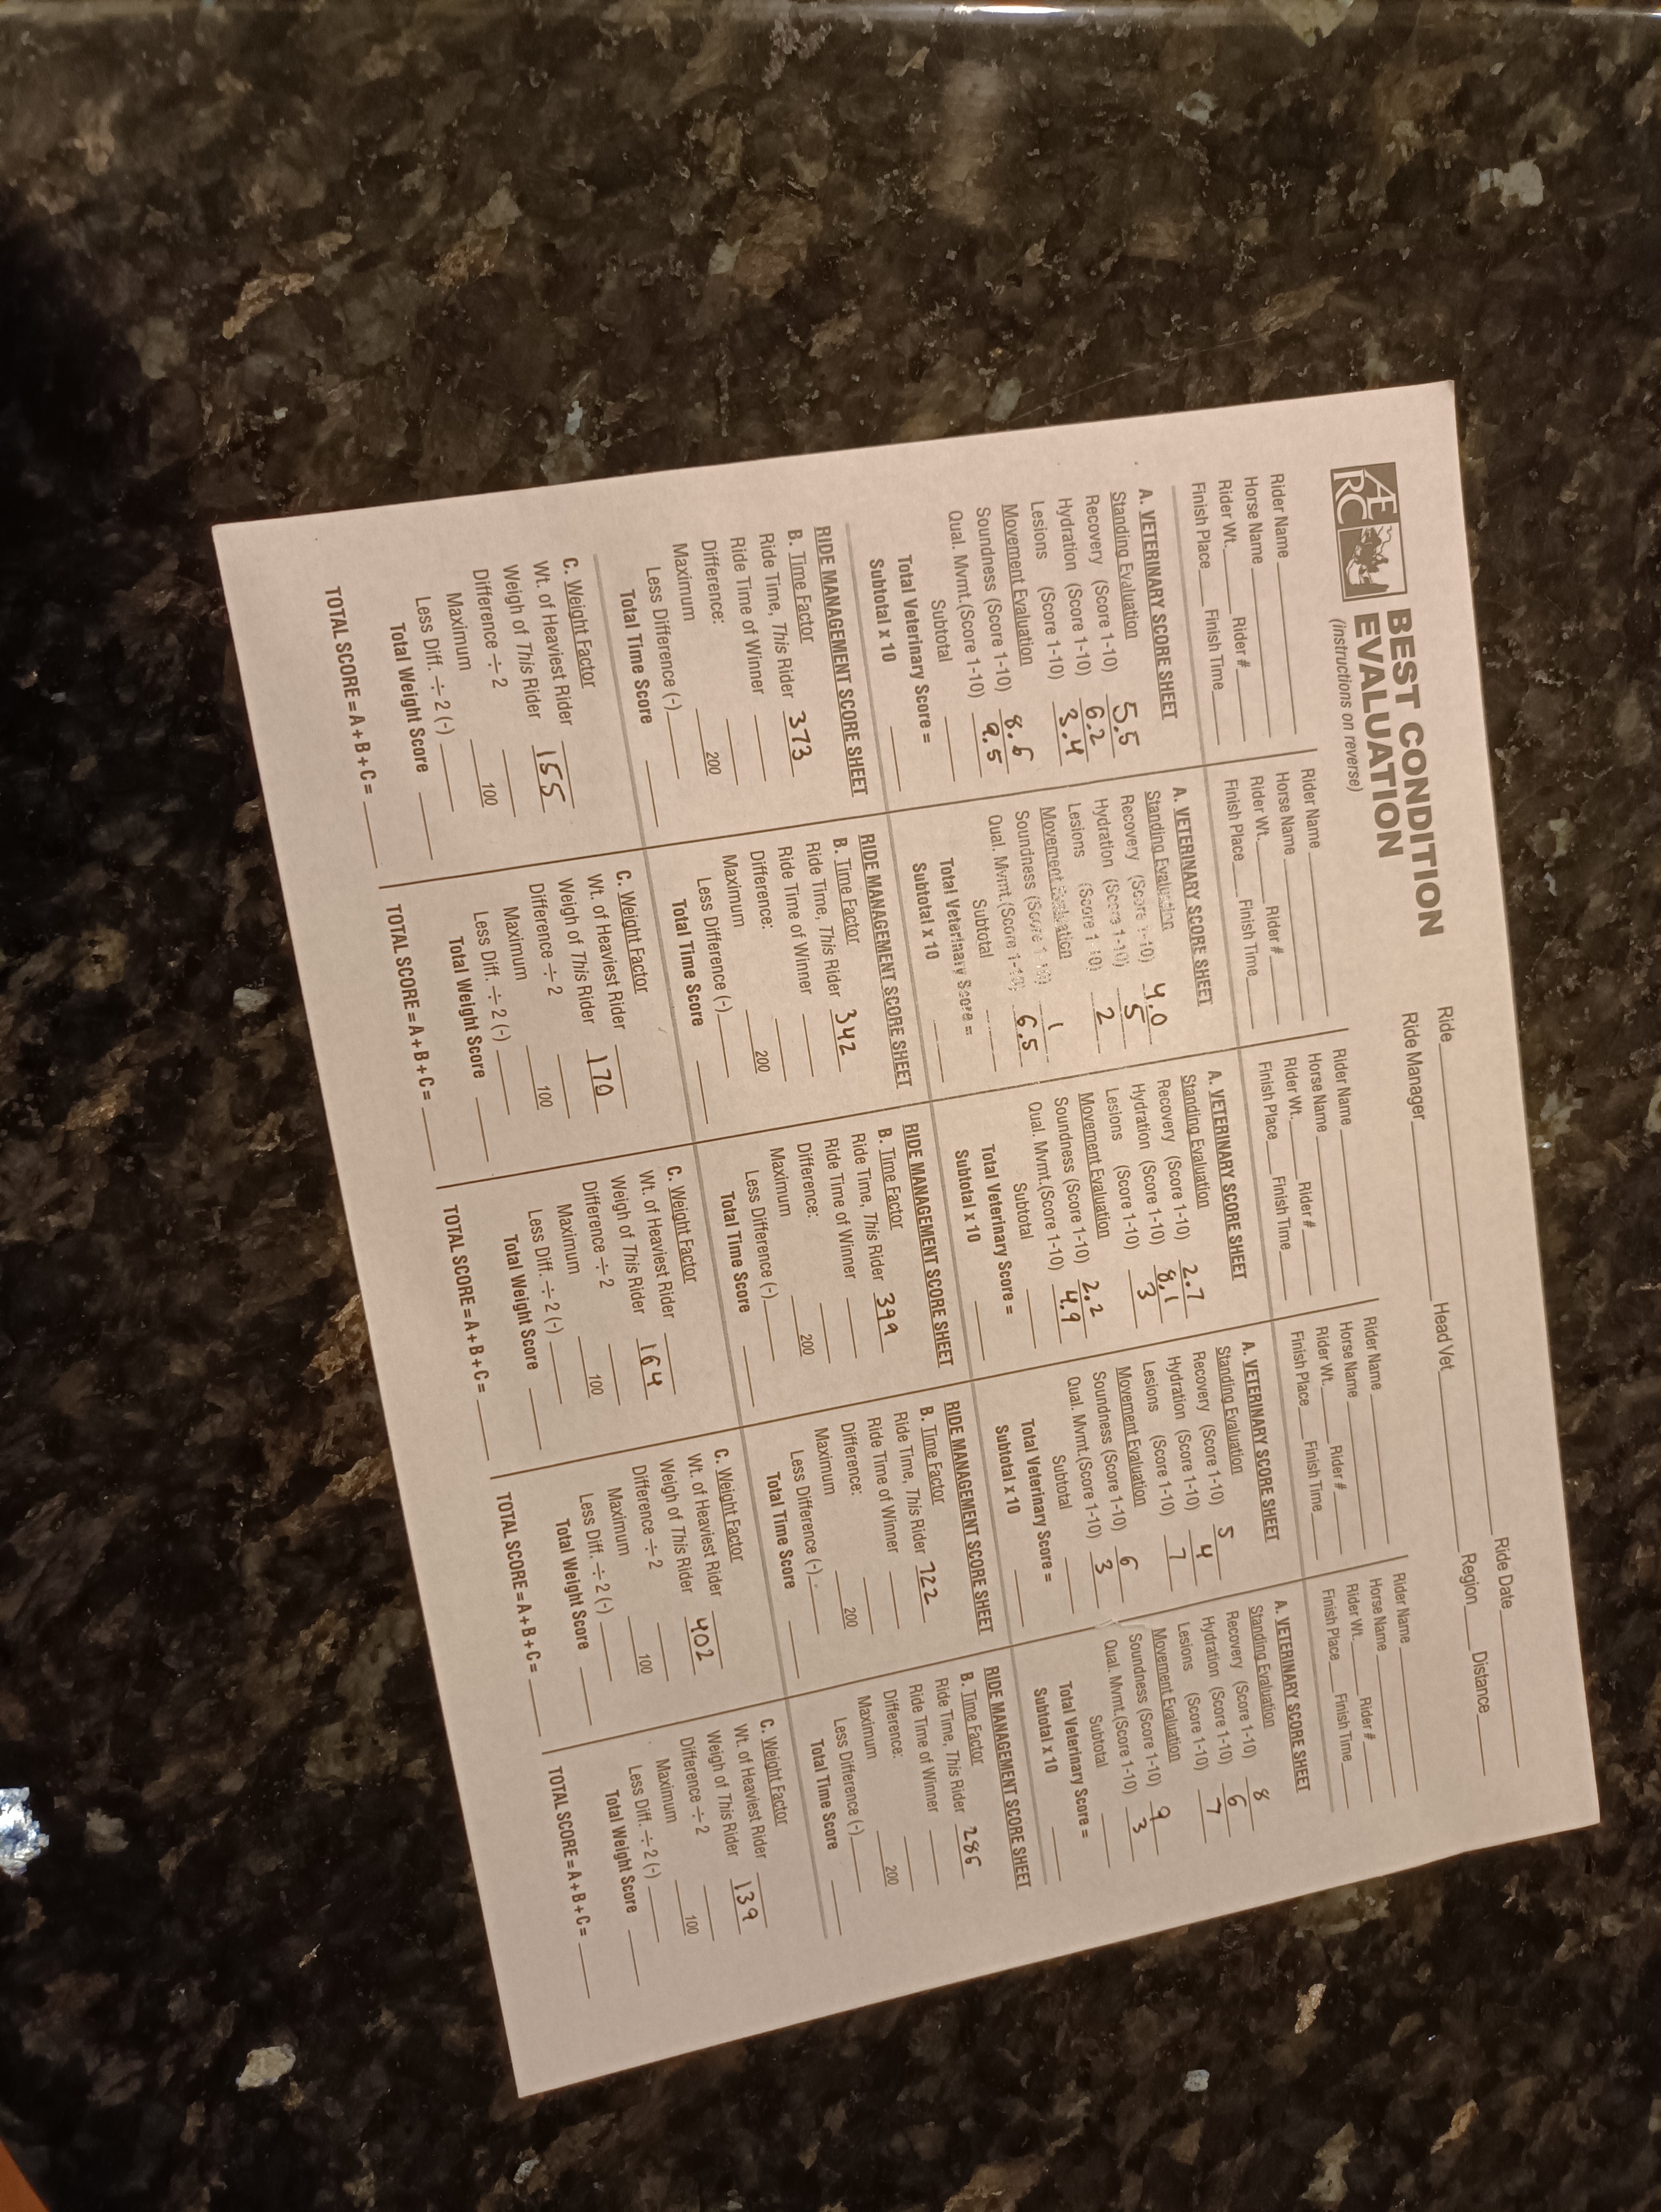 AERC
BEST CONDITION
EVALUATION
(instructions on reverse)
Ride Ride Date
Ride Manager Head Vet Region Distance
Rider Name
Horse Name
Rider Wt. Rider #
Finish Place Finish Time
A. VETERINARY SCORE SHEET
Standing Evaluation
Recovery (Score 1-10) 5.5
Hydration (Score 1-10) 6.2
Lesions (Score 1-10) 3.4
Movement Evaluation
Soundness (Score 1-10) 8.6
Qual. Mvmt.(Score 1-10) 9.5
Subtotal
Total Veterinary Score =
Subtotal x 10
RIDE MANAGEMENT SCORE SHEET
B. Time Factor
Ride Time, This Rider 373
Ride Time of Winner
Difference:
Maximum 200
Less Difference (-)
Total Time Score
C. Weight Factor
Wt. of Heaviest Rider
Weigh of This Rider 155
Difference ÷ 2
Maximum 100
Less Diff. ÷ 2 (-)
Total Weight Score
TOTAL SCORE = A + B + C =
Rider Name
Horse Name
Rider Wt. Rider #
Finish Place Finish Time
A. VETERINARY SCORE SHEET
Standing Evaluation
Recovery (Score 1-10) 4.0
Hydration (Score 1-10) 5
Lesions (Score 1-10) 2
Movement Evaluation
Soundness (Score 1-10) 1
Qual. Mvmt.(Score 1-10) 6.5
Subtotal
Total Veterinary Score =
Subtotal x 10
RIDE MANAGEMENT SCORE SHEET
B. Time Factor
Ride Time, This Rider 342
Ride Time of Winner
Difference:
Maximum 200
Less Difference (-)
Total Time Score
C. Weight Factor
Wt. of Heaviest Rider
Weigh of This Rider 170
Difference ÷ 2
Maximum 100
Less Diff. ÷ 2 (-)
Total Weight Score
TOTAL SCORE = A + B + C =
Rider Name
Horse Name
Rider Wt. Rider #
Finish Place Finish Time
A. VETERINARY SCORE SHEET
Standing Evaluation
Recovery (Score 1-10) 2.7
Hydration (Score 1-10) 8.1
Lesions (Score 1-10) 3
Movement Evaluation
Soundness (Score 1-10) 2.2
Qual. Mvmt.(Score 1-10) 4.9
Subtotal
Total Veterinary Score =
Subtotal x 10
RIDE MANAGEMENT SCORE SHEET
B. Time Factor
Ride Time, This Rider 399
Ride Time of Winner
Difference:
Maximum 200
Less Difference (-)
Total Time Score
C. Weight Factor
Wt. of Heaviest Rider
Weigh of This Rider 164
Difference ÷ 2
Maximum 100
Less Diff. ÷ 2 (-)
Total Weight Score
TOTAL SCORE = A + B + C =
Rider Name
Horse Name
Rider Wt. Rider #
Finish Place Finish Time
A. VETERINARY SCORE SHEET
Standing Evaluation
Recovery (Score 1-10) 5
Hydration (Score 1-10) 4
Lesions (Score 1-10) 7
Movement Evaluation
Soundness (Score 1-10) 6
Qual. Mvmt.(Score 1-10) 3
Subtotal
Total Veterinary Score =
Subtotal x 10
RIDE MANAGEMENT SCORE SHEET
B. Time Factor
Ride Time, This Rider 722
Ride Time of Winner
Difference:
Maximum 200
Less Difference (-)
Total Time Score
C. Weight Factor
Wt. of Heaviest Rider
Weigh of This Rider 402
Difference ÷ 2
Maximum 100
Less Diff. ÷ 2 (-)
Total Weight Score
TOTAL SCORE = A + B + C =
Rider Name
Horse Name
Rider Wt. Rider #
Finish Place Finish Time
A. VETERINARY SCORE SHEET
Standing Evaluation
Recovery (Score 1-10) 8
Hydration (Score 1-10) 6
Lesions (Score 1-10) 7
Movement Evaluation
Soundness (Score 1-10) 9
Qual. Mvmt.(Score 1-10) 3
Subtotal
Total Veterinary Score =
Subtotal x 10
RIDE MANAGEMENT SCORE SHEET
B. Time Factor
Ride Time, This Rider 286
Ride Time of Winner
Difference:
Maximum 200
Less Difference (-)
Total Time Score
C. Weight Factor
Wt. of Heaviest Rider
Weigh of This Rider 139
Difference ÷ 2
Maximum 100
Less Diff. ÷ 2 (-)
Total Weight Score
TOTAL SCORE = A + B + C =